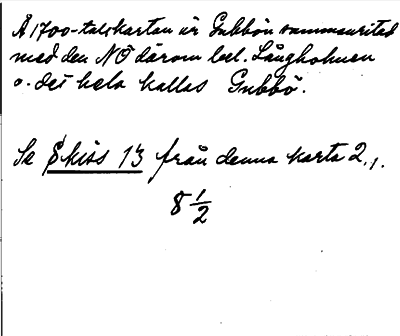 Å 1700-talskartan är Gubbön sammanritad
med den NO därom bel. Långholmen
o. det hela kallas Gubbö.
Se Skiss 13 från denna karta 2,1.
8 1/2